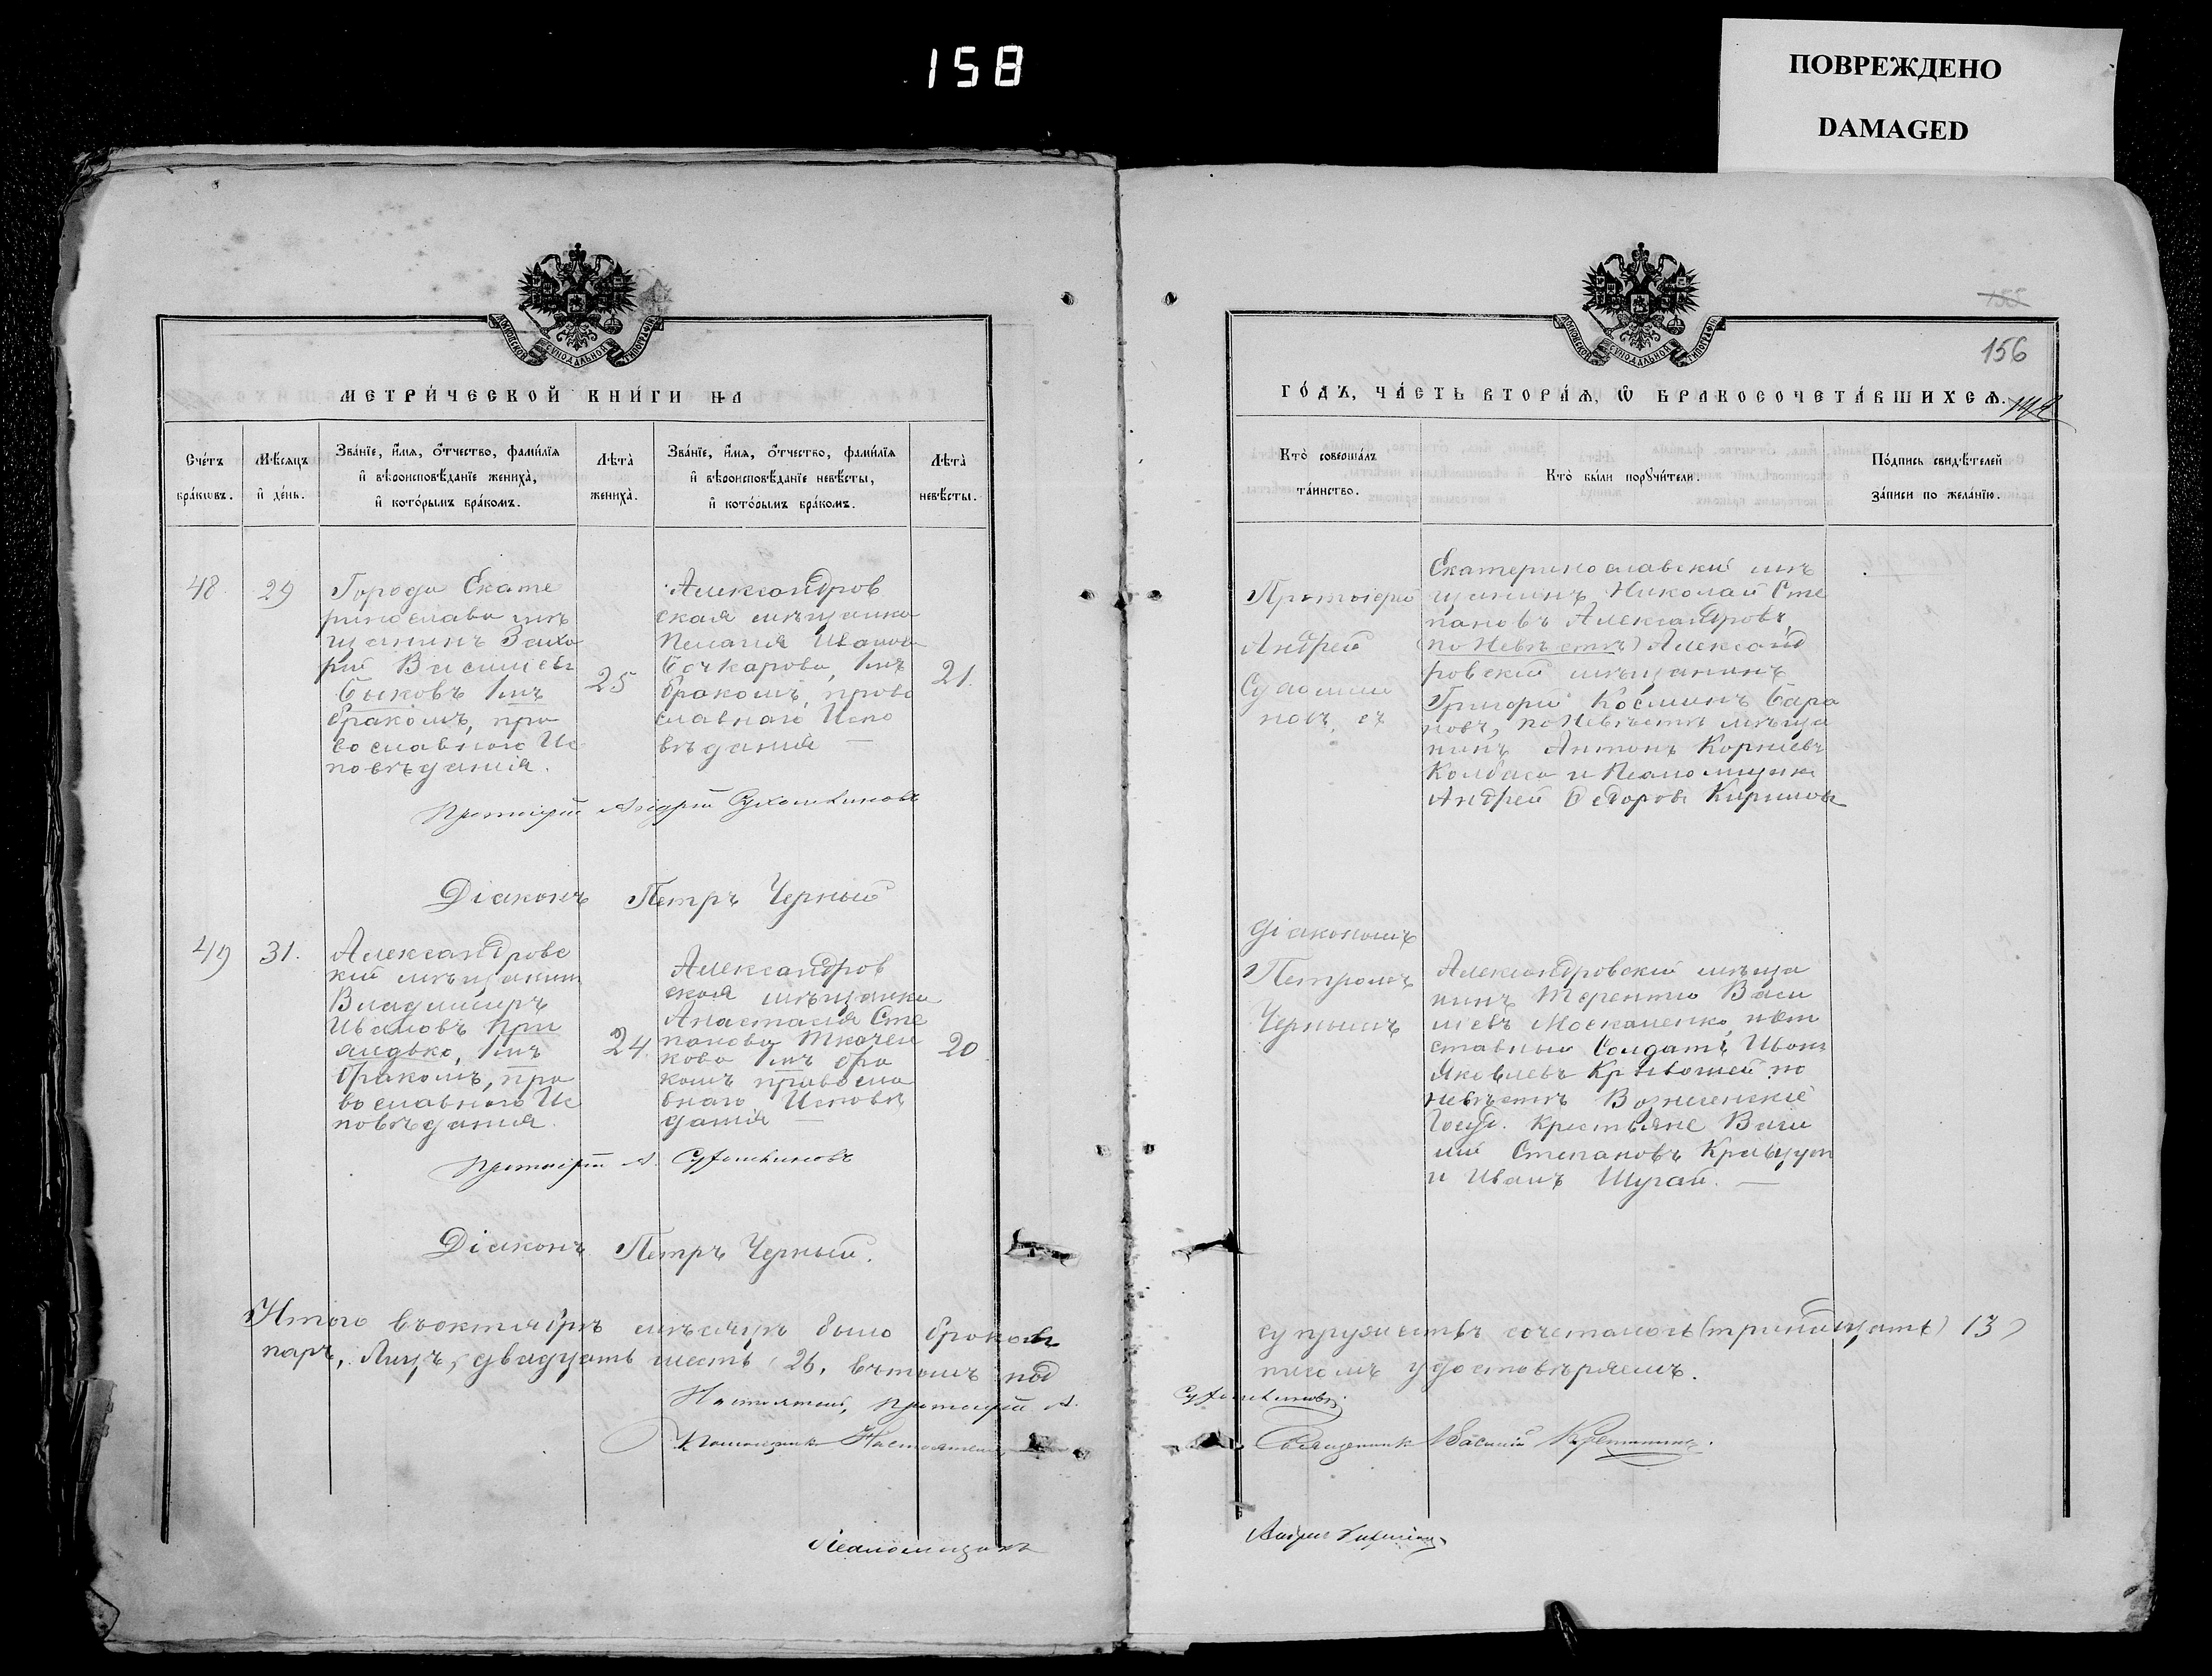 158
ПОВРЕЖДЕНО
DAMAGED
МОСКОВСКОЙ СѴНОДАЛЬНОЙ ТИПОГРАФІИ
МЕТРИ́ЧЕСКОЙ КНИ́ГИ НА
Сче́тъ бра́кѡвъ.
Мѣ́сяцъ и҆ де́нь.
Зва́нїе, и҆́мѧ, ѻ҆́тчество, фами́лїѧ и҆ вѣроисповѣ́данїе жениха̀, и҆ кото́рымъ бра́комъ.
Лѣта̀ жениха̀.
Зва́нїе, и҆́мѧ, ѻ҆́тчество, фами́лїѧ и҆ вѣроисповѣ́данїе невѣ́сты, и҆ кото́рымъ бра́комъ.
Лѣта̀ невѣ́сты.
48.
29
Города Екате
ринослава мѣ
щанинъ Заха
рій Василіевъ
Быковъ 1мъ
бракомъ, пра
вославнаго Ис
повѣданія.
25
Александров
ская мѣщанка
Пелагія Иванова
Бочкарова, 1мъ
бракомъ, право
славнаго Испо
вѣданія —
21.
Протоіерей Андрей Сухомлиновъ
Діаконъ Петръ Черный
49
31.
Александровс
кій мѣщанин
Владиміръ
Ивановъ При
лидько, 1мъ
бракомъ, пра
вославнаго Ис
повѣданія.
24.
Александров
ская мѣщанка
Анастасія Сте
панова Ткачен
кова 1мъ бра
комъ правосла
внаго Исповѣ
данія —
20
Протоіерей А. Сухомлиновъ
Діаконъ Петръ Черный.
Итого въ октябрѣ мѣсяцѣ было браков
паръ, Лицъ, двадцать шесть, 26, въ томъ под
Настоятель, Протоіерей А.
Помощникъ Настоятеля
Псаломщикъ
МОСКОВСКОЙ СѴНОДАЛЬНОЙ ТИПОГРАФІИ
155
156
ГО́ДЪ, ЧА́СТЬ ВТОРА́Ѧ, Ѽ БРАКОСОЧЕТА́ВШИХСѦ.
Кто̀ соверша́лъ та́инство.
Кто̀ бы́ли порꙋчи́тели.
По́дпись свидѣ́телей за́писи по жела́нїю.
Протоіерей
Андрей
Сухомли
новъ, съ
Екатеринославскій мѣ
щанинъ Николай Сте
пановъ Александровъ,
(по Невѣстѣ) Александ
ровскій мѣщанинъ
Григорій Косминъ Бара
новъ, по Невѣстѣ мѣща
нинъ Антонъ Корніевъ
Колбаса и Псаломщикъ
Андрей Ѳедоровъ Кириловъ
Діакономъ
Петромъ
Чернымъ
Александровскій мѣща
нинъ Терентій Васи
ліевъ Москаленко,
ставный Солдатъ Иванъ
Яковлевъ Кривошей по
невѣстѣ Вознесенскіе
Госуд. Крестьяне Васи
лій Степановъ Кравцун
и Иванъ Шугай. —
супружествѣ сочеталось (тринадцать) 13)
писомъ удостовѣряемъ.
Сухомлиновъ.
Священникъ Василій
Андрей Кириловъ